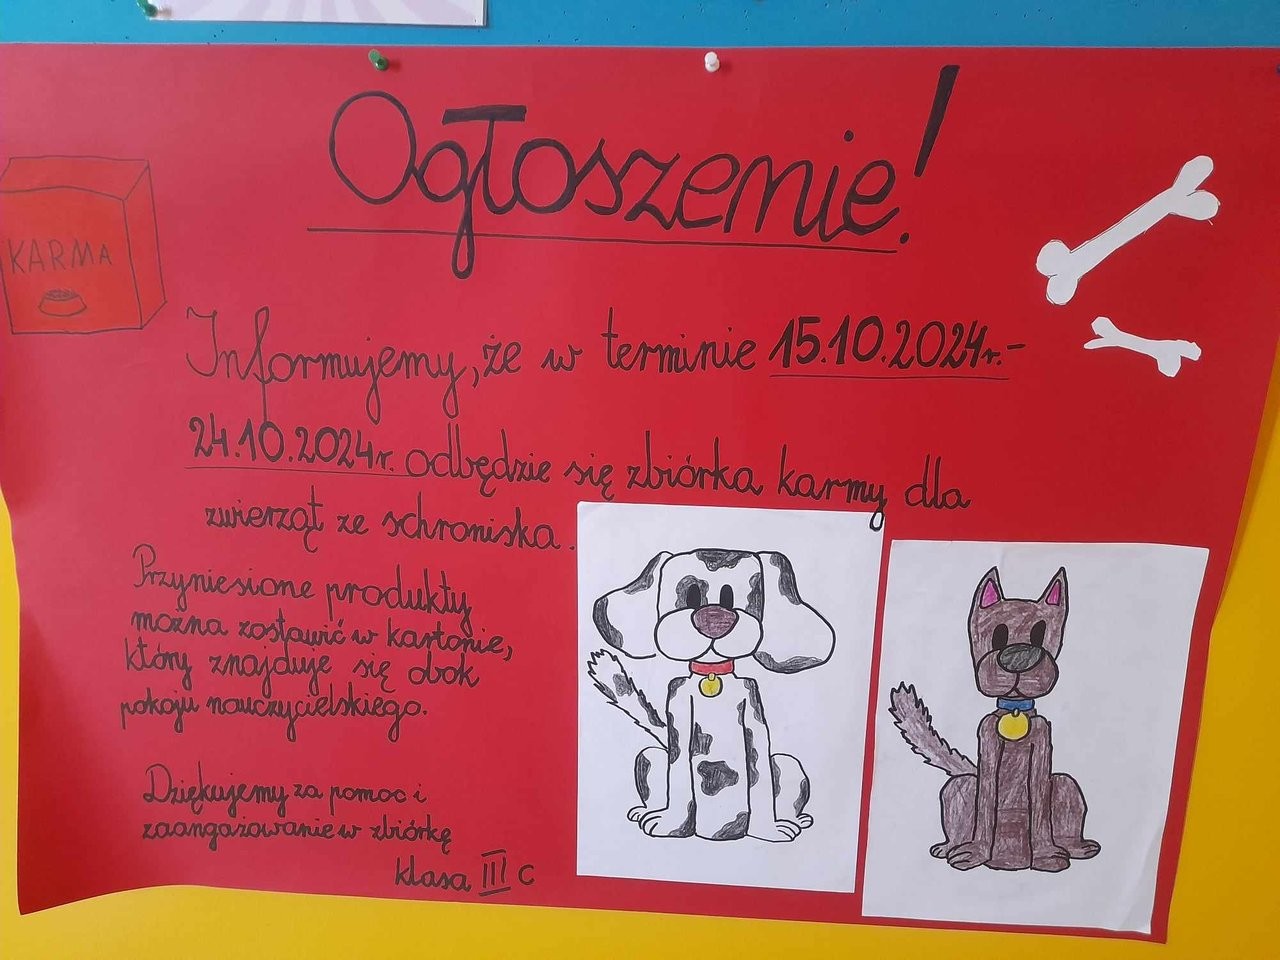 Ogłoszenie!
KARMA
Informujemy, że w terminie 15.10.2024r.-
24.10.2024r. odbędzie się zbiórka karmy dla
zwierząt ze schroniska.
Przyniesione produkty
można zostawić w kartonie,
który znajduje się obok
pokoju nauczycielskiego.
Dziękujemy za pomoc i
zaangażowanie w zbiórkę
klasa III c